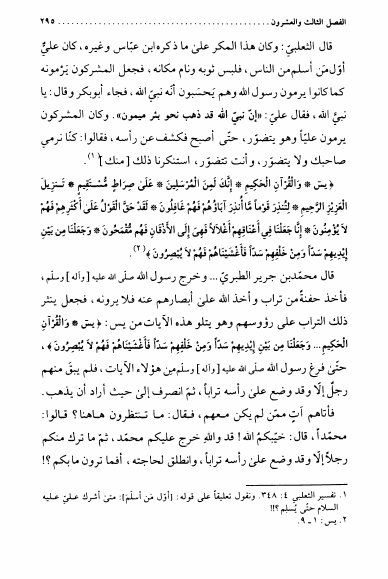 الفصل الثالث والعشرون ........................................ ٢٩٥
قال الثعلبيّ: وكان هذا المكر علىٰ ما ذكره ابن عبّاس وغيره، كان عليٌّ
أوّل مَن أسلم من الناس، فلبس ثوبه ونام مكانه، فجعل المشركون يَرْمونه
كما كانوا يرمون رسول الله وهم يَحسبون أنّه نبيّ الله، فجاء أبوبكر وقال: يا
نبيّ الله، فقال عليّ: «إنّ نبيّ الله قد ذهب نحو بئر ميمون». وكان المشركون
يرمون عليّاً وهو يتضوّر، حتّى أصبح فكشف عن رأسه، فقالوا: كنّا نرمي
صاحبك ولا يتضوّر، وأنت تتضوّر، استنكرنا ذلك [منك] (١).
﴿يسۤ * وَالْقُرآنِ الْحَكِيمِ * إِنَّكَ لَمِنَ الْمُرْسَلِينَ * عَلىٰ صِرَاطٍ مُسْتَقِيمٍ * تَنزِيلَ
الْعَزِيزِ الرَّحِيمِ * لِتُنذِرَ قَوْماً مَا أُنذِرَ آبَاؤُهُمْ فَهُمْ غَافِلُونَ * لَقَدْ حَقَّ الْقَوْلُ عَلَىٰ أَكْثَرِهِمْ فَهُمْ
لَا يُؤْمِنُونَ * إِنَّا جَعَلْنَا فِي أَعْنَاقِهِمْ أَغْلَالاً فَهِيَ إِلَى الأَذْقَانِ فَهُم مُقْمَحُونَ * وَجَعَلْنَا مِن بَيْنِ
أَيْدِيهِمْ سَدّاً وَمِنْ خَلْفِهِمْ سَدّاً فَأَغْشَيْنَاهُمْ فَهُمْ لَا يُبْصِرُونَ﴾ (٢).
قال محمّد بن جرير الطبريّ... وخرج رسول الله صلّى الله عليه [وآله] وسلّم،
فأخذ حفنةً من تراب وأخذ الله علىٰ أبصارهم عنه فلا يرونه، فجعل ينثر
ذلك التراب علىٰ رؤوسهم وهو يتلو هذه الآيات من يس: ﴿يسۤ * وَالْقُرآنِ
الْحَكِيمِ ... وَجَعَلْنَا مِن بَيْنِ أَيْدِيهِمْ سَدّاً وَمِنْ خَلْفِهِمْ سَدّاً فَأَغْشَيْنَاهُمْ فَهُمْ لَا يُبْصِرُونَ﴾،
حتّى فرغ رسول الله صلّى الله عليه [وآله] وسلّم من هؤلاء الآيات، فلم يبق منهم
رجلٌ إلّا وقد وضع علىٰ رأسه تراباً، ثمّ انصرف إلىٰ حيث أراد أن يذهب.
فأتاهم آتٍ ممّن لم يكن معهم، فقال: ما تنتظرون هاهنا؟ قالوا:
محمّداً، قال: خيّبكم الله! قد والله خرج عليكم محمّد، ثمّ ما ترك منكم
رجلاً إلّا وقد وضع علىٰ رأسه تراباً، وانطلق لحاجته، أفما ترون ما بكم؟!
١. تفسير الثعلبي ٤: ٣٤٨. ونقول تعليقاً علىٰ قوله: [أوّل مَن أسلمَ]: متىٰ أشرك عليّ عليه
السلام حتّى يُسلِم؟!!
٢. يس: ١ ـ ٩.